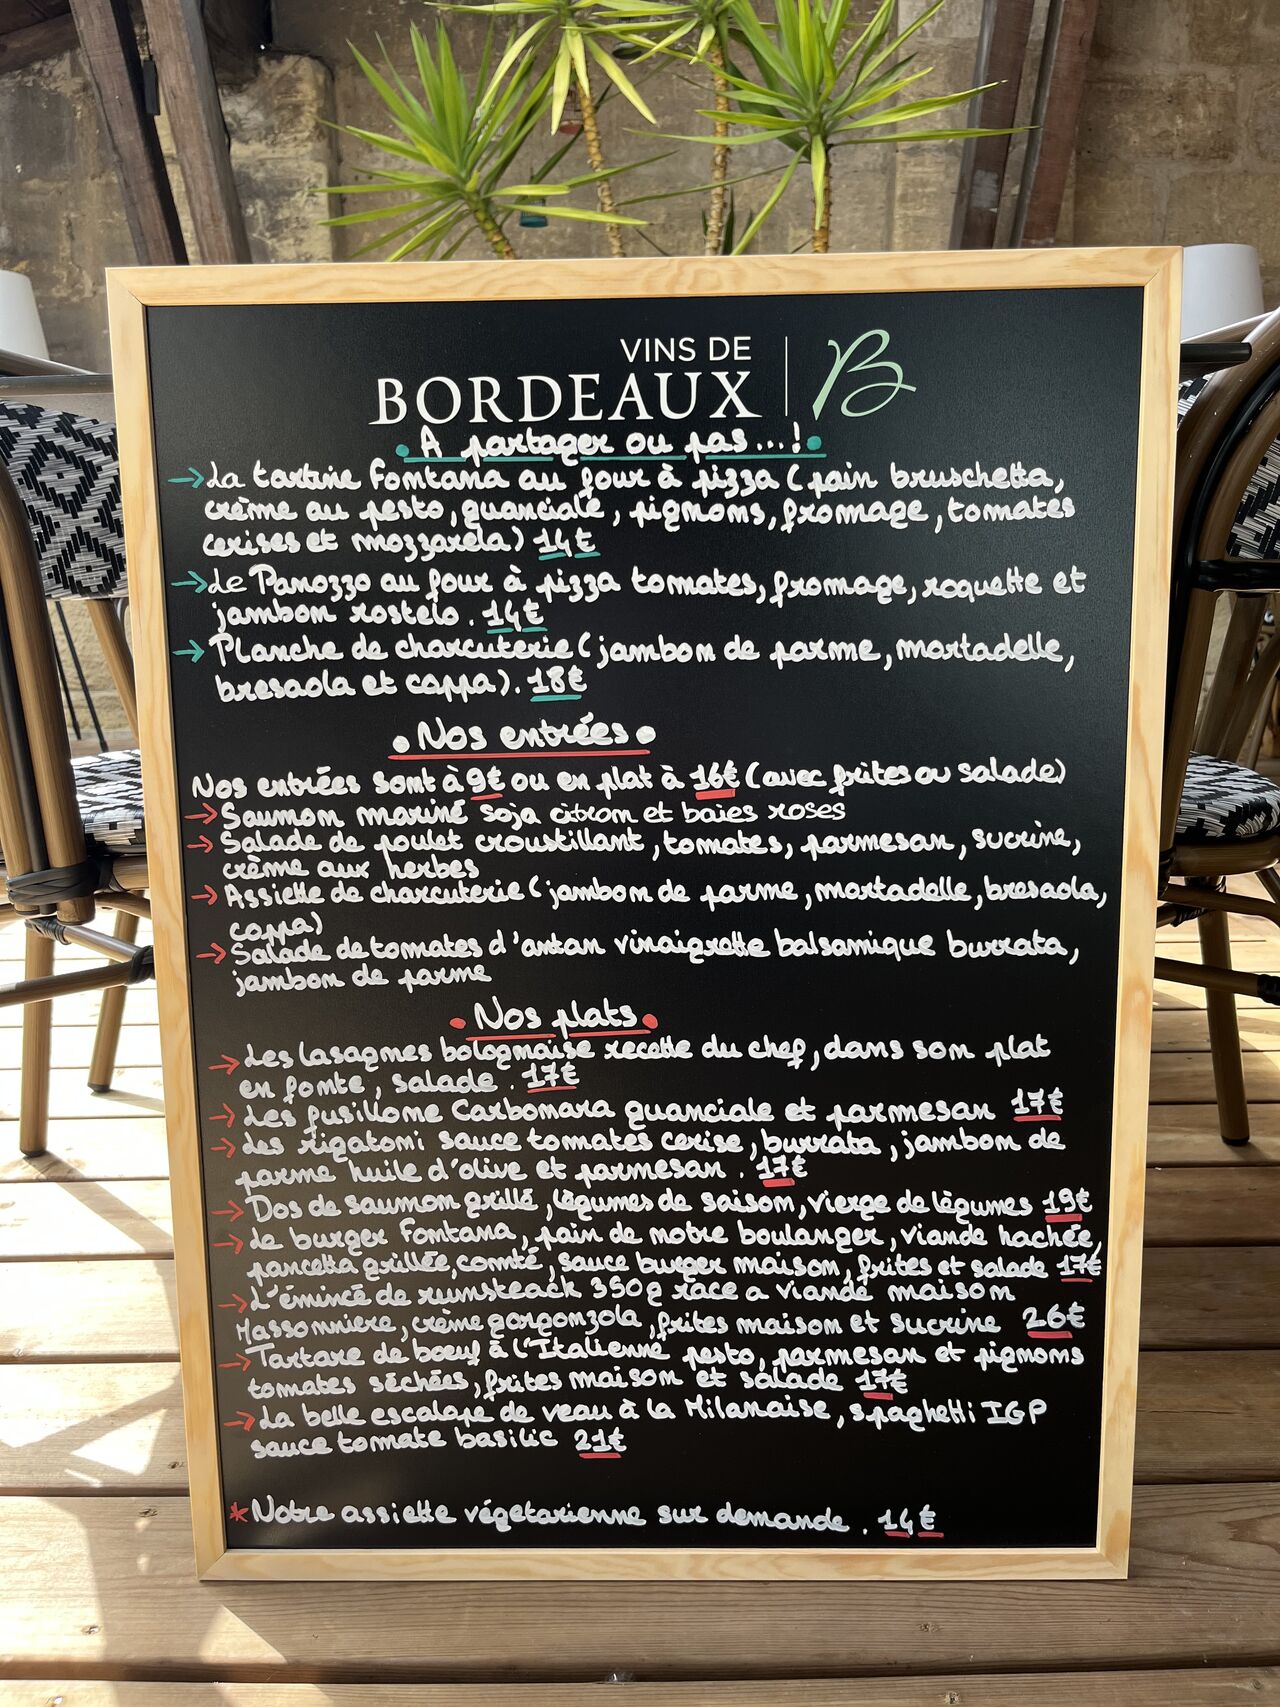 VINS DE
BORDEAUX B
A partager ou pas...!
→La tartine Fontana au four à pizza (pain bruschetta,
crème au pesto, guanciale, pignons, fromage, tomates
cerises et mozzarela) 14€
→Le Panozzo au four à pizza tomates, fromage, roquette et
jambon rostelo. 14€
→Planche de charcuterie (jambon de parme, mortadelle,
bresaola et coppa). 18€
• Nos entrées •
Nos entrées sont à 9€ ou en plat à 16€ (avec frites ou salade)
→Saumon mariné soja citron et baies roses
→Salade de poulet croustillant, tomates, parmesan, sucrine,
crème aux herbes
→Assiette de charcuterie (jambon de parme, mortadelle, bresaola,
coppa)
→Salade de tomates d'antan vinaigrette balsamique burrata,
jambon de parme
• Nos plats •
→Les lasagnes bolognaise recette du chef, dans son plat
en fonte, salade. 17€
→Les fusillone Carbonara guanciale et parmesan 17€
→Les rigatoni sauce tomates cerise, burrata, jambon de
parme huile d'olive et parmesan. 17€
→Dos de saumon grillé, légumes de saison, vierge de légumes 19€
→Le burger Fontana, pain de notre boulanger, viande hachée,
pancetta grillée, comté, sauce burger maison, frites et salade 17€
→L'émincé de rumsteack 350g race a viande maison
Massonniere, crème gorgonzola, frites maison et sucrine 26€
→Tartare de bœuf à l'Italienne pesto, parmesan et pignons
tomates séchées, frites maison et salade 17€
→La belle escalope de veau à la Milanaise, spaghetti IGP
sauce tomate basilic 21€
*Notre assiette végetarienne sur demande. 14€